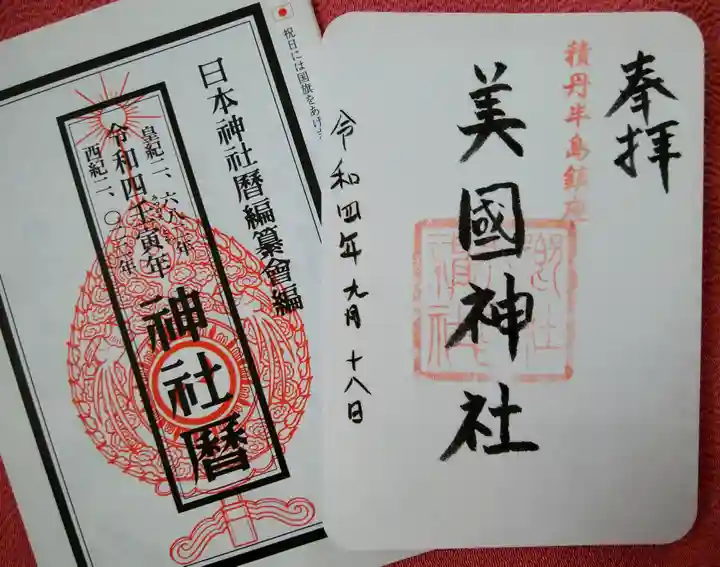 奉拝
積丹半島鎮座
美國神社
令和四年九月十八日
祝日には国旗をあげ
日本神社暦編纂會編
皇紀二、六八二年
令和四壬寅年
西紀二、〇二二年
神社暦